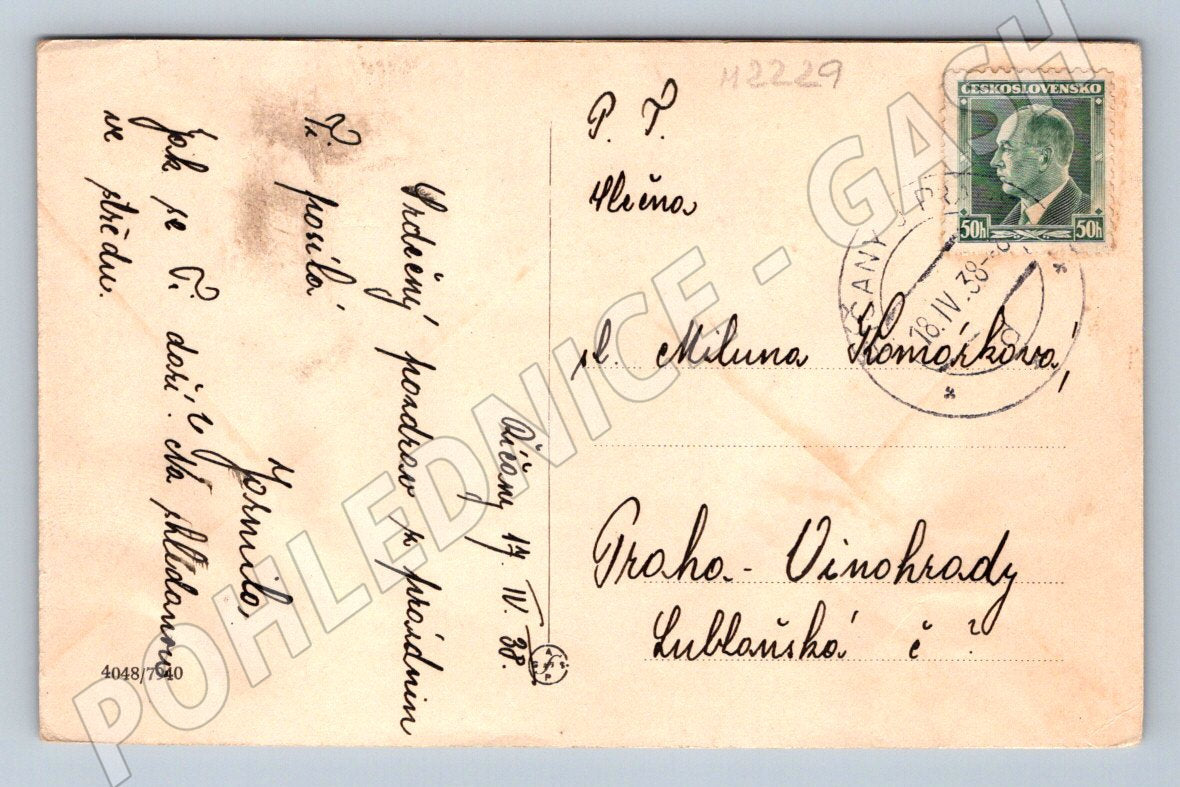 M2229
ČESKOSLOVENSKO
50h 50h
18.IV.38
P. T.
Slečna
sl. Miluna Komárková,
Praha - Vinohrady
Lublaňská č ?
Říčany 17. IV. 38.
Srdečný pozdrav z prázdnin
Ti posílá
Jarmila.
Jak se Ti daří? Na shledanou
ve středu.
4048/7940
POHLEDNICE - GACH